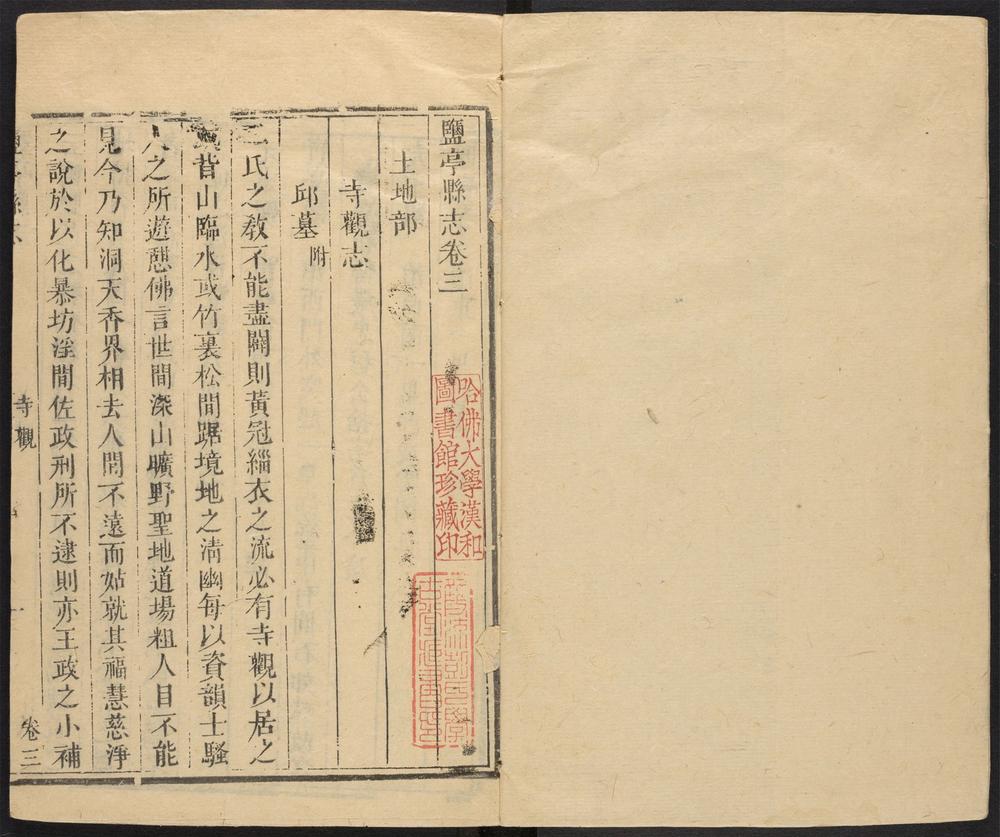 鹽亭縣志卷三
土地部
寺觀志
邱墓附
二氏之教不能盡闢則黃冠緇衣之流必有寺觀以居之
背山臨水或竹裏松間踞境地之清幽每以資韻士騷
人之所遊憇佛言世間深山曠野聖地道場粗人目不能
見今乃知洞天香界相去人間不遠而姑就其福慧慈淨
之說於以化暴坊淫間佐政刑所不逮則亦王政之小補
寺觀
卷三
哈佛大學漢和
圖書館珍藏印